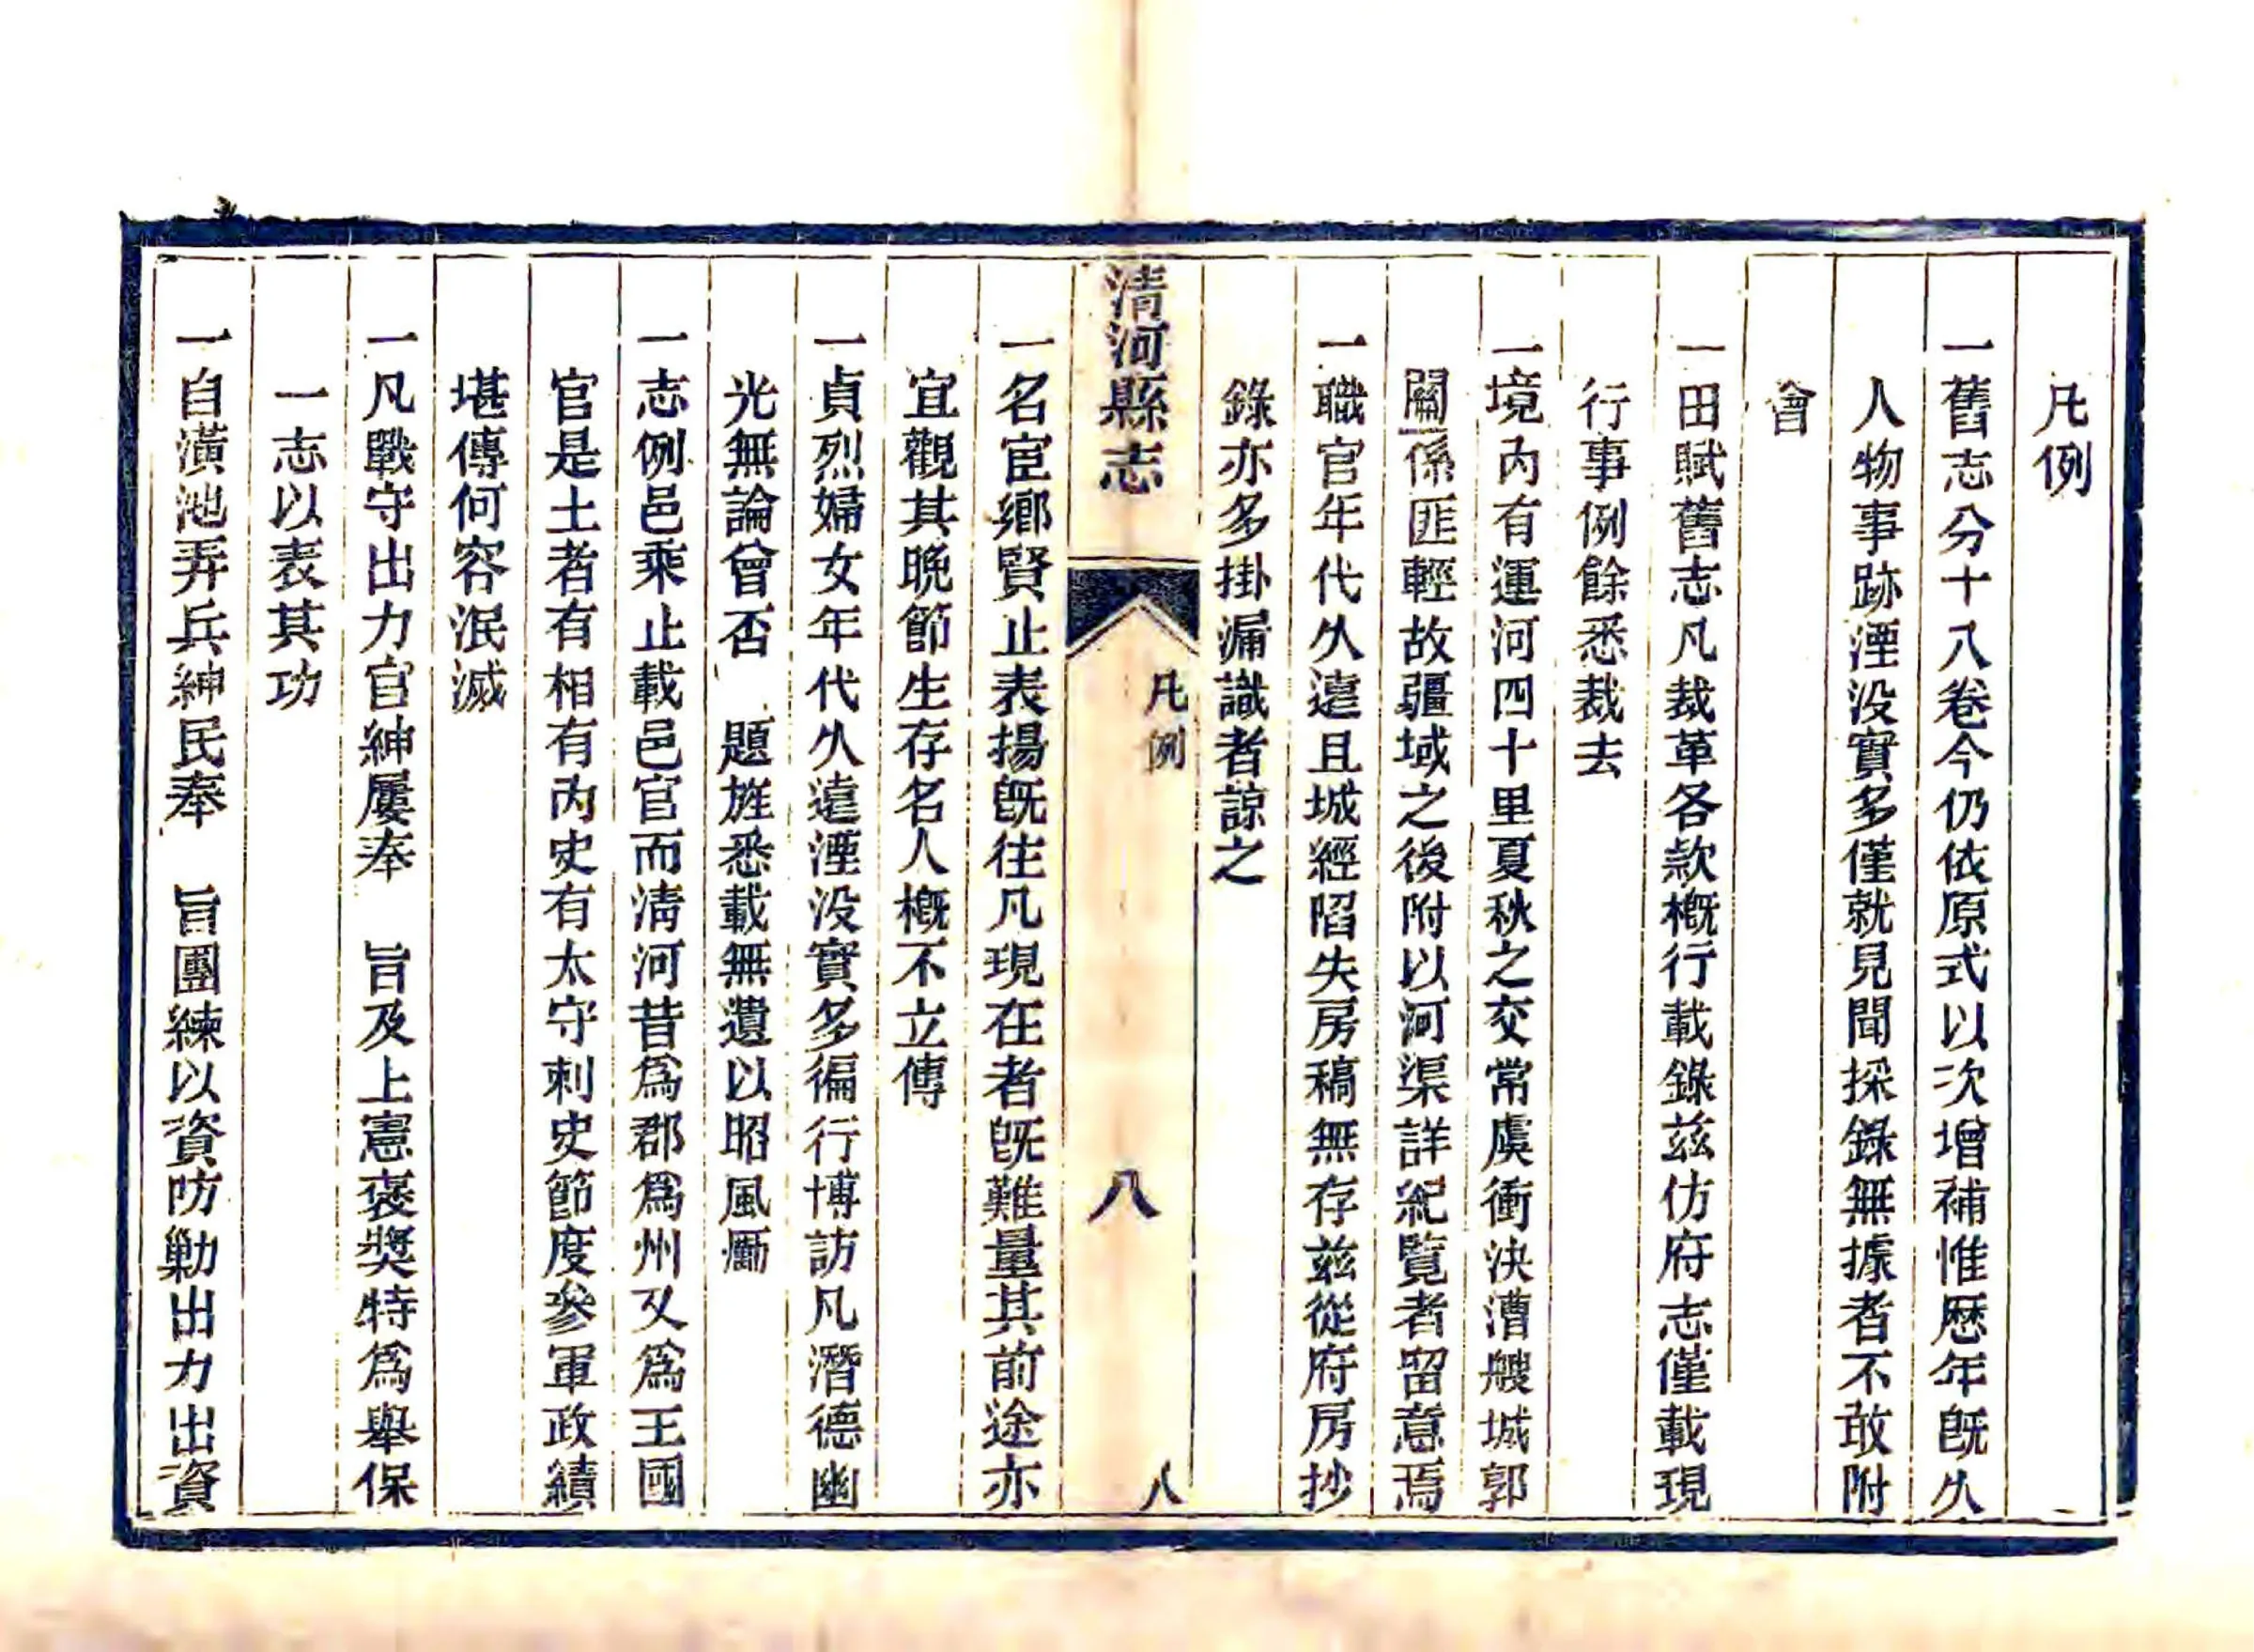 凡例
一舊志分十八卷今仍依原式以次增補惟歷年旣久
人物事跡湮没實多僅就見聞採錄無據者不敢附
會
一田賦舊志凡裁革各款槪行載錄茲仿府志僅載現
行事例餘悉裁去
一境內有運河四十里夏秋之交常虞衝決漕艘城郭
關係匪輕故疆域之後附以河渠詳紀覽者留意焉
一職官年代久遠且城經陷失房稿無存茲從府房抄
錄亦多掛漏識者諒之
清河縣志
凡例
八
八
一名宦鄉賢止表揚旣往凡現在者旣難量其前途亦
宜觀其晚節生存名人槪不立傳
一貞烈婦女年代久遠湮没實多徧行博訪凡潛德幽
光無論曾否　題旌悉載無遺以昭風勵
一志例邑乘止載邑官而淸河昔爲郡爲州又爲王國
官是土者有相有內史有太守刺史節度參軍政績
堪傳何容泯滅
一凡戰守出力官紳屢奉　旨及上憲褒獎特爲舉保
一志以表其功
一自潢池弄兵紳民奉　旨團練以資防勦出力出資